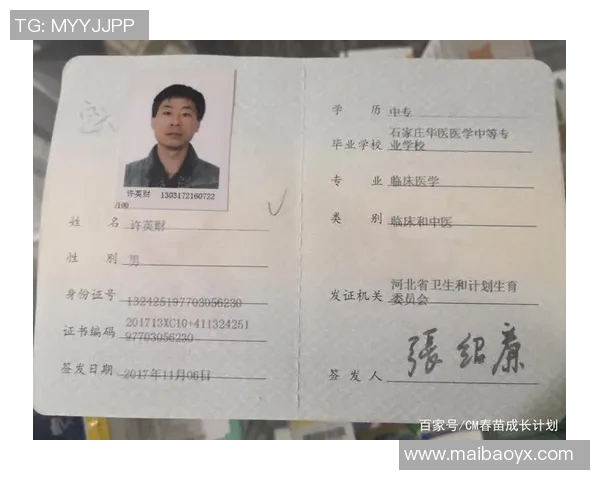 TG: MYYJJPP
许英财 1303172160722
/100
姓 名 许英财
性 别 男
身份证号 132425197703056230
证书编码 201713XC10+411324251
97703056230
签发日期 2017年11月06日
学 历 中专
毕业学校 石家庄华医医学中等专
业学校
专 业 临床医学
类 别 临床和中医
发证机关 河北省卫生和计划生育
委员会
签 发 人 張紹廉
百家号/CM春苗成长计划
www.maibaoyx.com